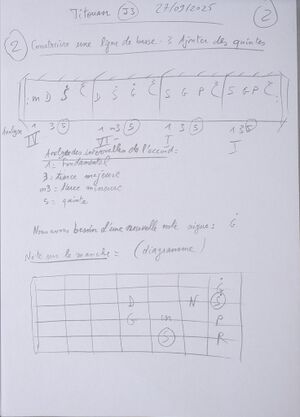 Titouan (J3) 27/03/2025 (2)
(2) Construire une ligne de basse - 3 Ajouter des quintes
. m D Ṡ Ċ | D Ṡ Ġ Ċ | S G P Ċ | S G P Ċ
Analyse 1 3 (5) 1 m3 (5) 1 3 (5) 1 3 (5)
I I
Analyse des intervalles de l'accord =
1 = fondamentale
3 = tierce majeure
m3 = tierce mineure
5 = quinte
Nous avons besoin d'une nouvelle note aigue : Ġ
Note sur le manche = (diagramme)
Ċ
D N (Ṡ)
G m P
(S) R